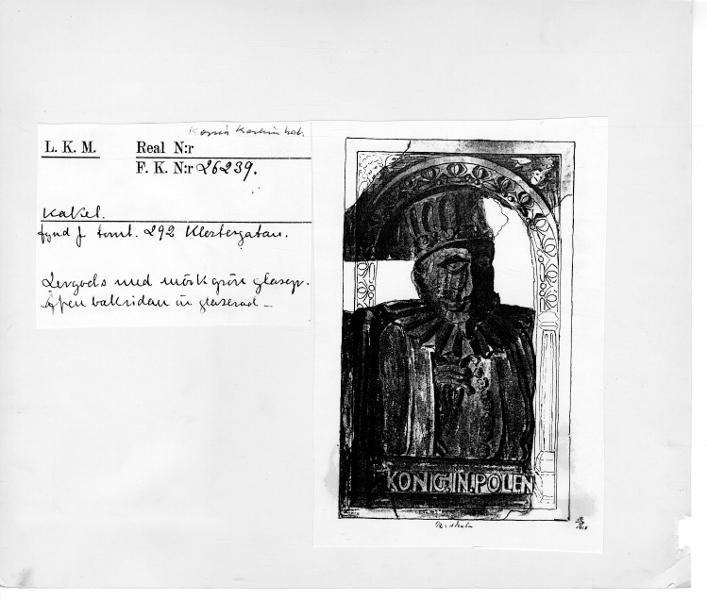 L. K. M.
Real N:r
F. K. N:r 26239.
Kakel.
fynd f tomt. 292 Klostergatan.
Lergods med mörkgrön glasyr.
även baksidan är glaserad
KONIG.IN.POLEN